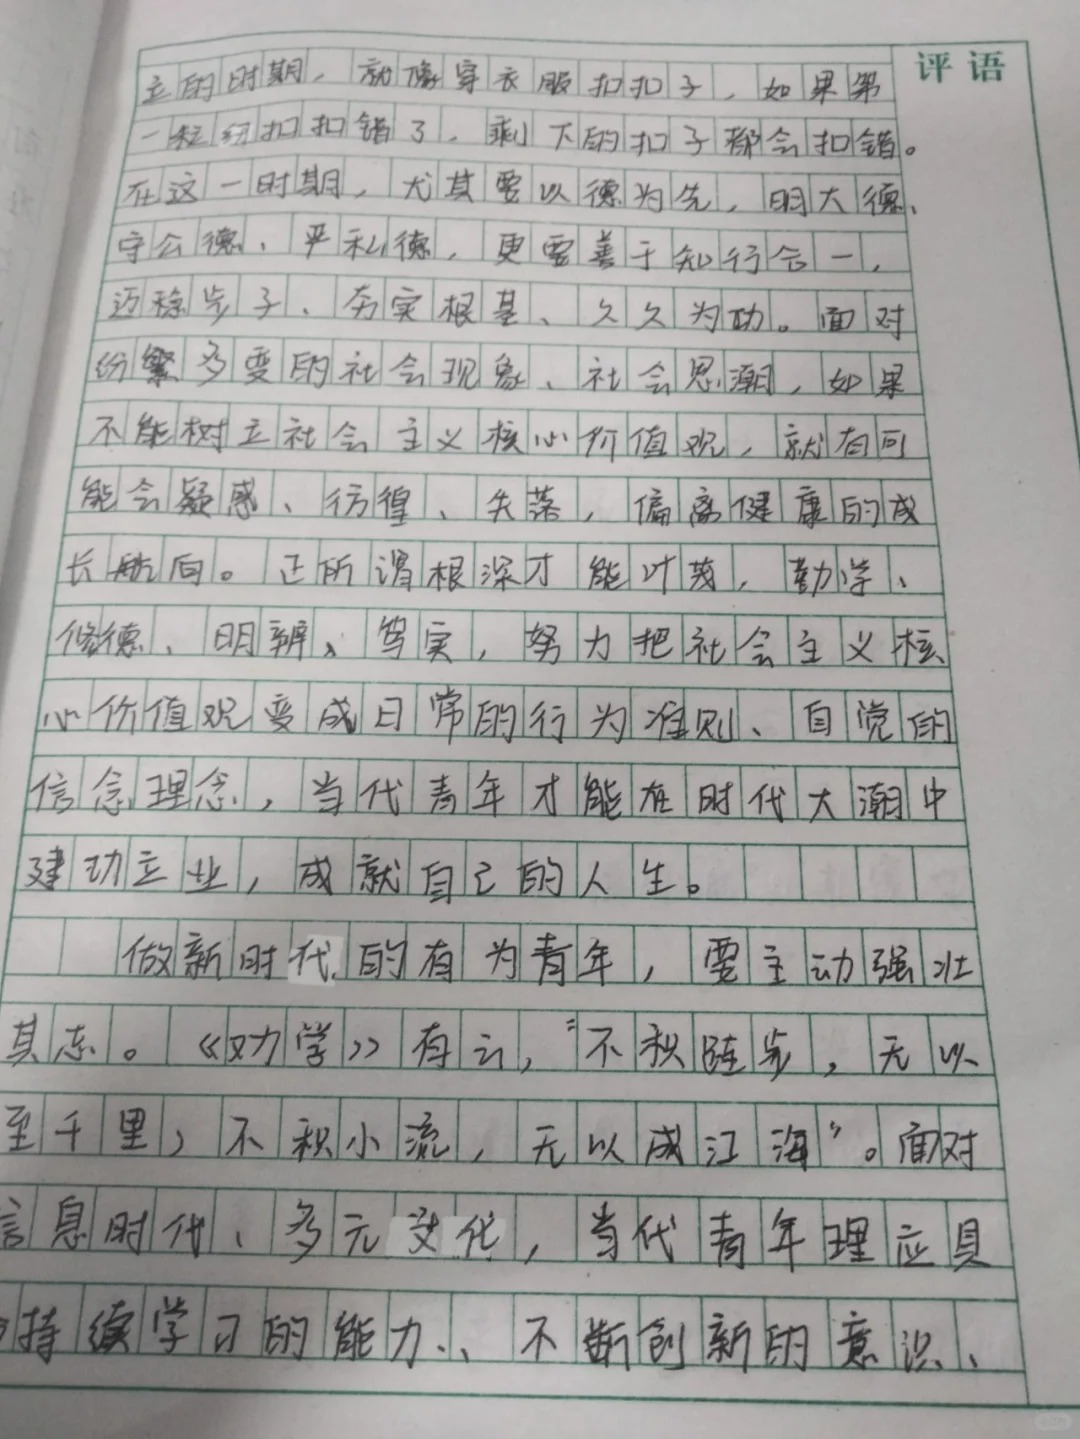 评语
立的时期，就像穿衣服扣扣子，如果第
一粒纽扣扣错了，剩下的扣子都会扣错。
在这一时期，尤其要以德为先，明大德、
守公德、严私德，更要善于知行合一，
迈稳步子、夯实根基、久久为功。面对
纷繁多变的社会现象、社会思潮，如果
不能树立社会主义核心价值观，就有可
能会疑惑、彷徨、失落，偏离健康的成
长航向。正所谓根深才能叶茂，勤学、
修德、明辨、笃实，努力把社会主义核
心价值观变成日常的行为准则、自觉的
信念理念，当代青年才能在时代大潮中
建功立业，成就自己的人生。
做新时代的有为青年，要主动强壮
其志。《劝学》有云，“不积跬步，无以
至千里，不积小流，无以成江海”。面对
信息时代、多元文化，当代青年理应具
持续学习的能力、、不断创新的意识、